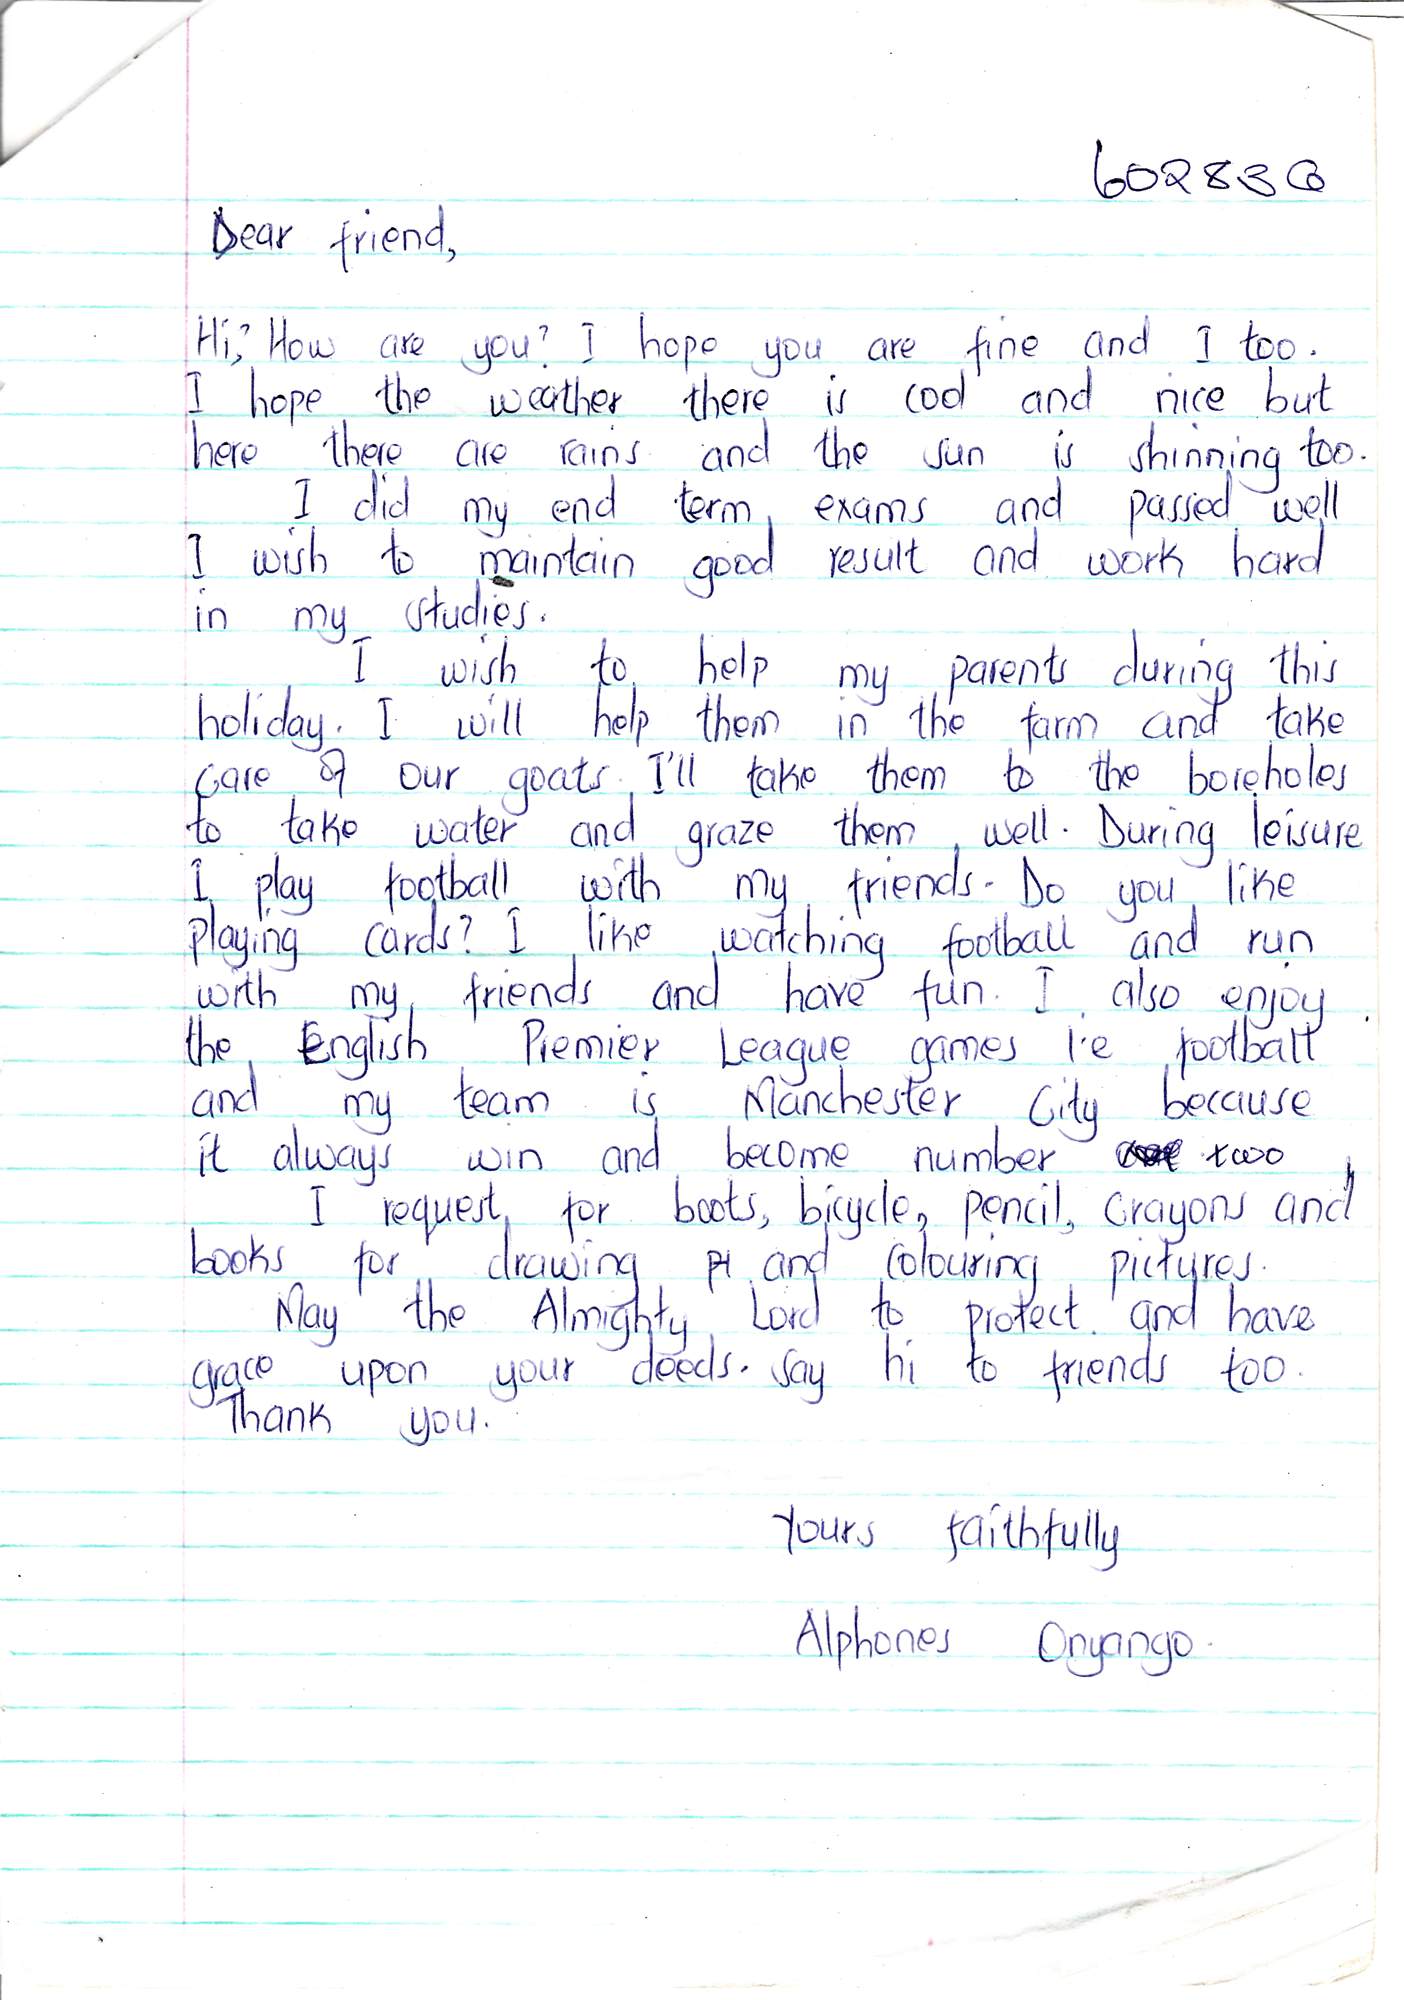 602838
Dear friend,
Hi, How are you? I hope you are fine and I too.
I hope the weather there is cool and nice but
here there are rains and the sun is shinning too.
I did my end term exams and passed well
I wish to maintain good result and work hard
in my studies.
I wish to help my parents during this
holiday. I will help them in the farm and take
care of our goats. I'll take them to the boreholes
to take water and graze them well. During leisure
I play football with my friends. Do you like
playing cards? I like watching football and run
with my friends and have fun. I also enjoy
the English Premier League games i.e football
and my team is Manchester City because
it always win and become number two
I request for boots, bicycle, pencil, crayons and
books for drawing and colouring pictures.
May the Almighty Lord to protect and have
grace upon your deeds. Say hi to friends too.
Thank you.
Yours faithfully
Alphones Onyango.